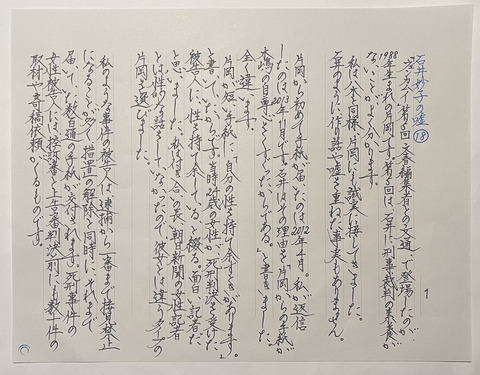 石井妙子の嘘⑱
1988年生まれの片岡です。第5回は、石井に刑事裁判の素養が
ないことがよく分かります。
私は八木と同様、片岡にも誠実に接してきました。
石井のように作り話や嘘を重ねた事実もありません。
片岡から初めて手紙が届いたのは2012年4月。私が返信
したのは2013年1月です。石井はその理由を「片岡からの手紙が
木嶋の自尊心をくすぐったからである。」と書きましたが
全く違います。
片岡が短い手紙に「自分の性を持て余すときがあります。」
と書いていたからです。当時24歳の女性が、死刑判決を受けた
被告人に「性を持て余している」と綴る。面白い記者だ
と思いました。私はつき合いの長い朝日新聞の女性記者
とは性の話をしていなかったので、彼女とは違うタイプの
片岡を選びました。
私のような事件の被告人は、逮捕から一審まで接見禁止
になることが多く、措置の解除と同時に、それまで
届いていた数百通の手紙が交付されます。死刑事件の
女性被告人には、控訴審と上告審判決前にも数十件の
取材や寄稿依頼がくるものです。
1
2